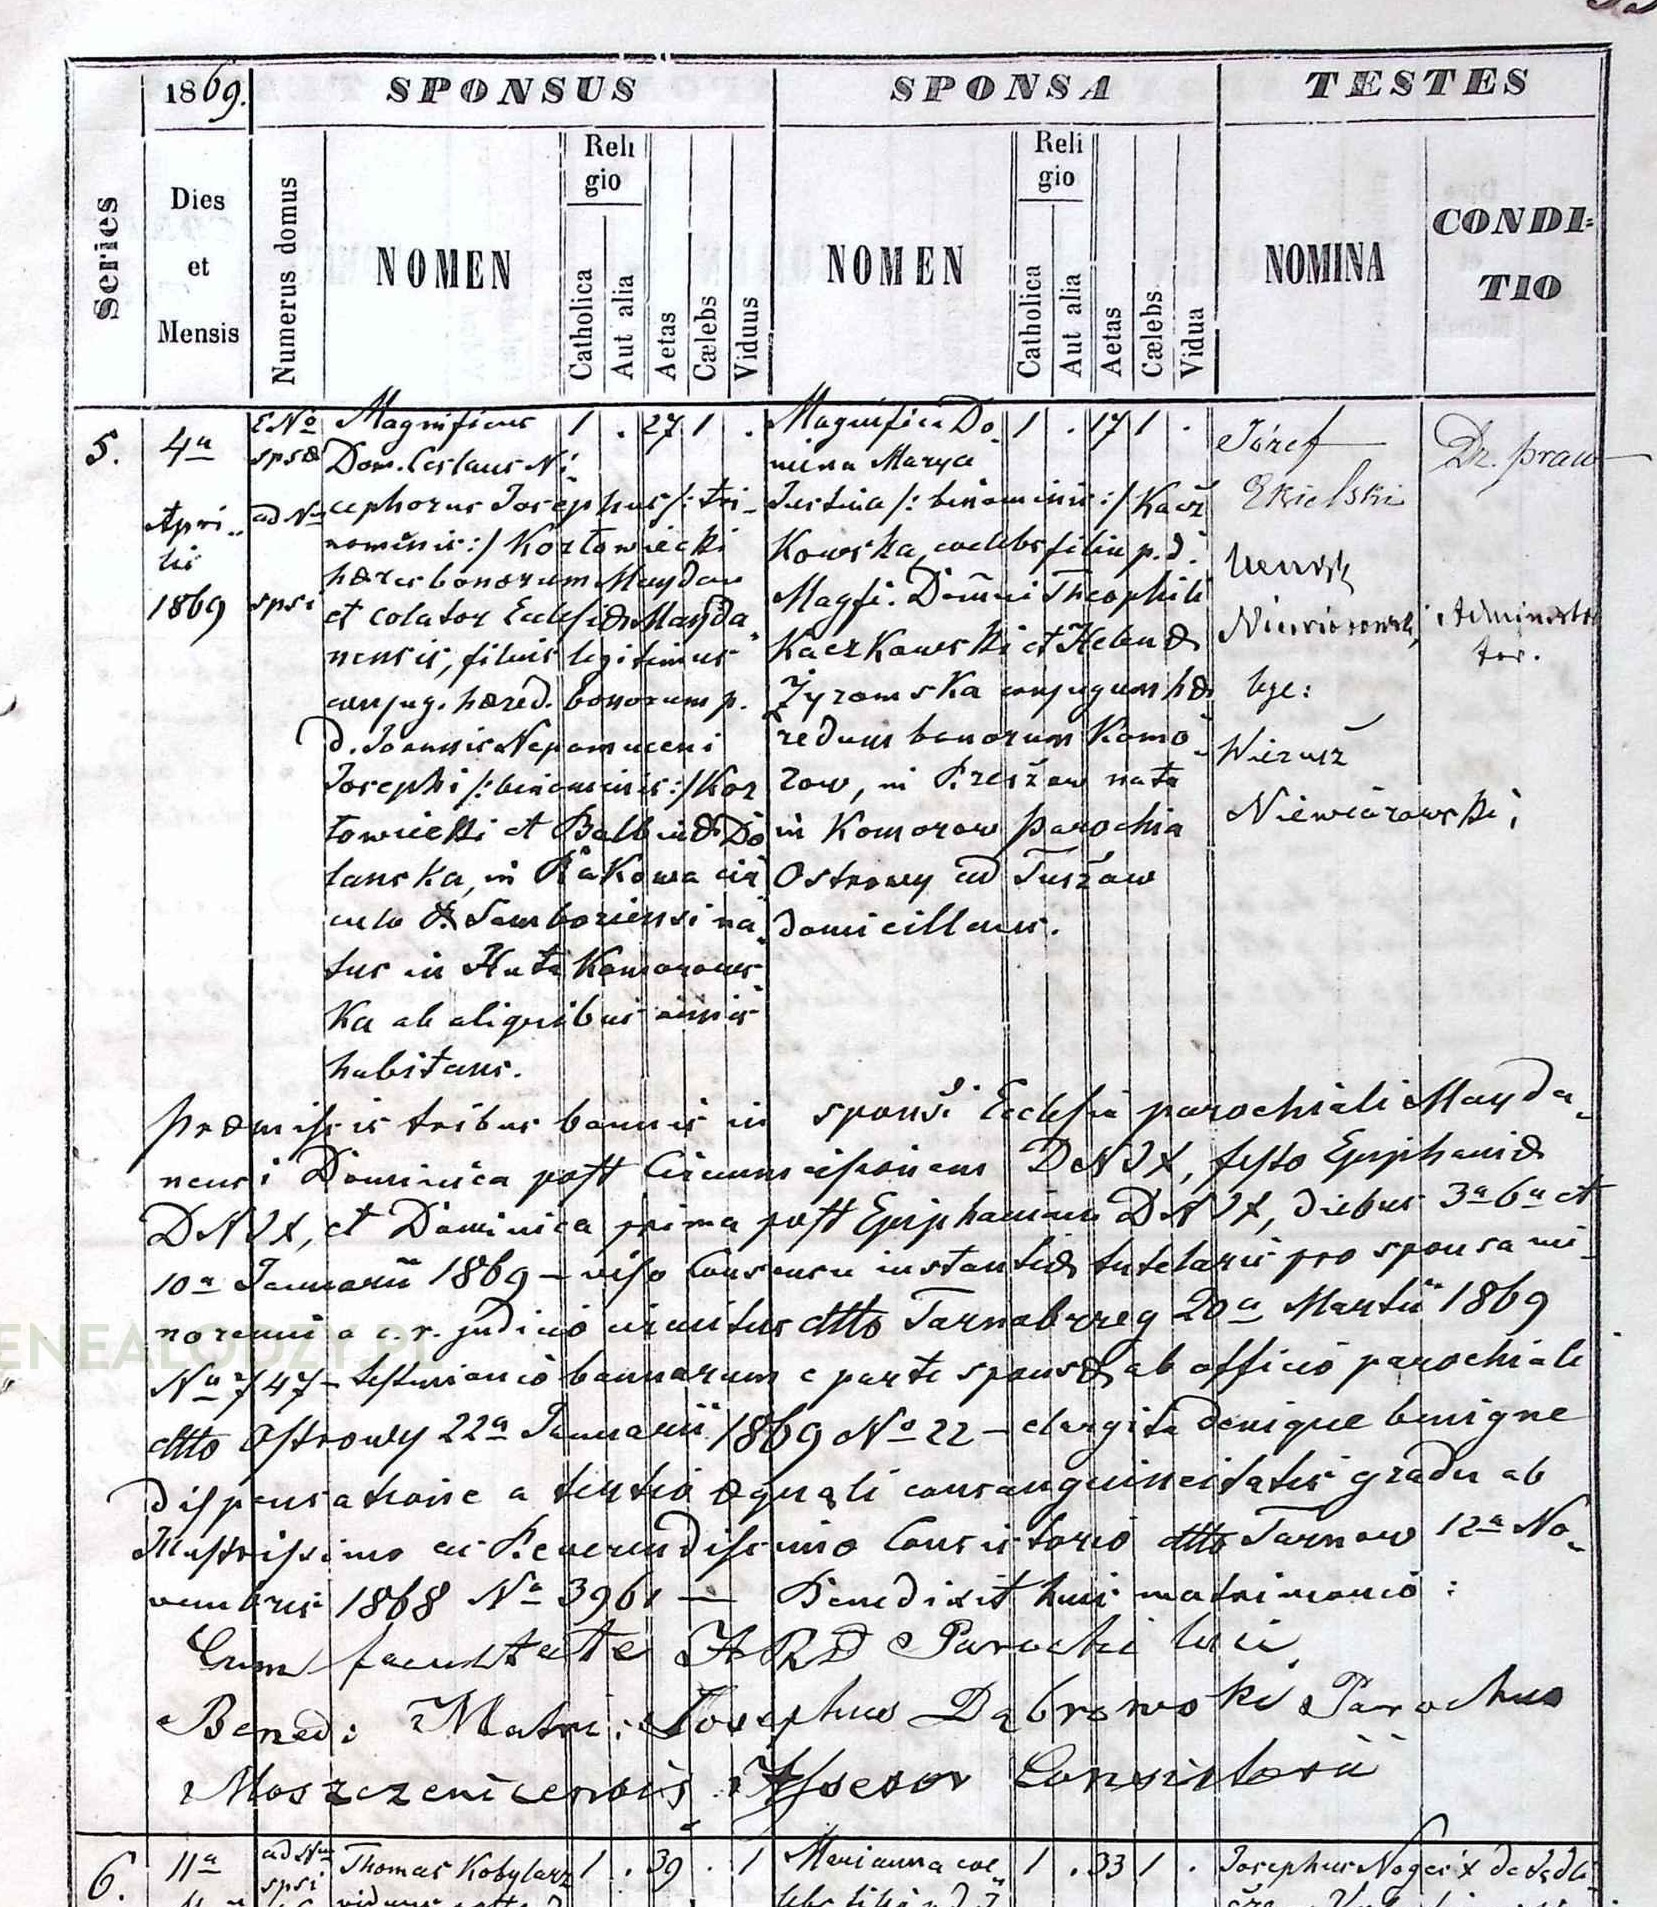 1869.
SPONSUS
SPONSA
TESTES
Series
Dies
et
Mensis
Numerus domus
NOMEN
Reli
gio
Catholica
Aut alia
Aetas
Cælebs
Viduus
NOMEN
Reli
gio
Catholica
Aut alia
Aetas
Cælebs
Vidua
NOMINA
CONDI-
TIO
5.
4a
Apri-
lis
1869
E No
spsæ
ad No
spsi
Magnificus
Dom. Ceslaus Ni
cephorus Josephus /: tri-
nominis :/ Kozłowiecki
hæres bonorum Maydan
et colator Ecclesiæ Mayda-
nensis, filius legitimus
conjug. hæred. bonorum p.
d. Joannis Nepomuceni
Josephi /: binominis :/ Koz
łowiecki et Balbinæ Do
lanska, in Rakowa cir
culo Samboriensi na-
tus in Huta Komorows
ka ab aliquibus annis
habitans.
1 . 27 1 .
Magnifica Do-
mina Marya
Justina /: binominis :/ Kacz
kowska, cælebs filia p. d.
Magfi. Domini Theophili
Kaczkowski et Helenæ
Zyromska conjugum hæ
redum bonorum Komo-
row, in Rzeszow nata
in Komorow parochia
Ostrowy ad Tuszow
domicillans.
1 . 17 1 .
Józef
Ekielski
Dr. praw
Henryk
Niewiarowski,
Administra
tor.
Wierusz
Niewiarowski;
Præmissis tribus bannis in sponsi Ecclesia parochiali Mayda-
nensi Dominica post Circumcisionem DNJX, festo Epiphaniæ
DNJX, et Dominica prima post Epiphaniam DNJX, diebus 3a 6a et
10a Januarii 1869 – viso consensu instantiæ tutelaris pro sponsa mi-
norenni a c. r. judicio circuitus dtto Tarnobrzeg 20a Martii 1869
No 747 – testimonio bannorum e parte sponsæ ab officio parochiali
dtto Ostrowy 22a Januarii 1869 No 22 – elargita denique benigne
dispensatione a tertio æquali consanguineitatis gradu ab
Illustrissimo ac Reverendissimo Consistorio dtto Tarnow 12a No-
vembris 1868 No 3961 — Benedixit huic matrimonio:
Cum facultate ARD Parochi loci,
Bened: Matri: Josephus Dąbrowski Parochus
Moszczenicensis Assesor Consistorii
6.
11a
ad No
spsi
Thomas Kobylarz
1 . 39 . 1
Marianna cæ-
1 . 33 1 .
GENEALODZY.PL